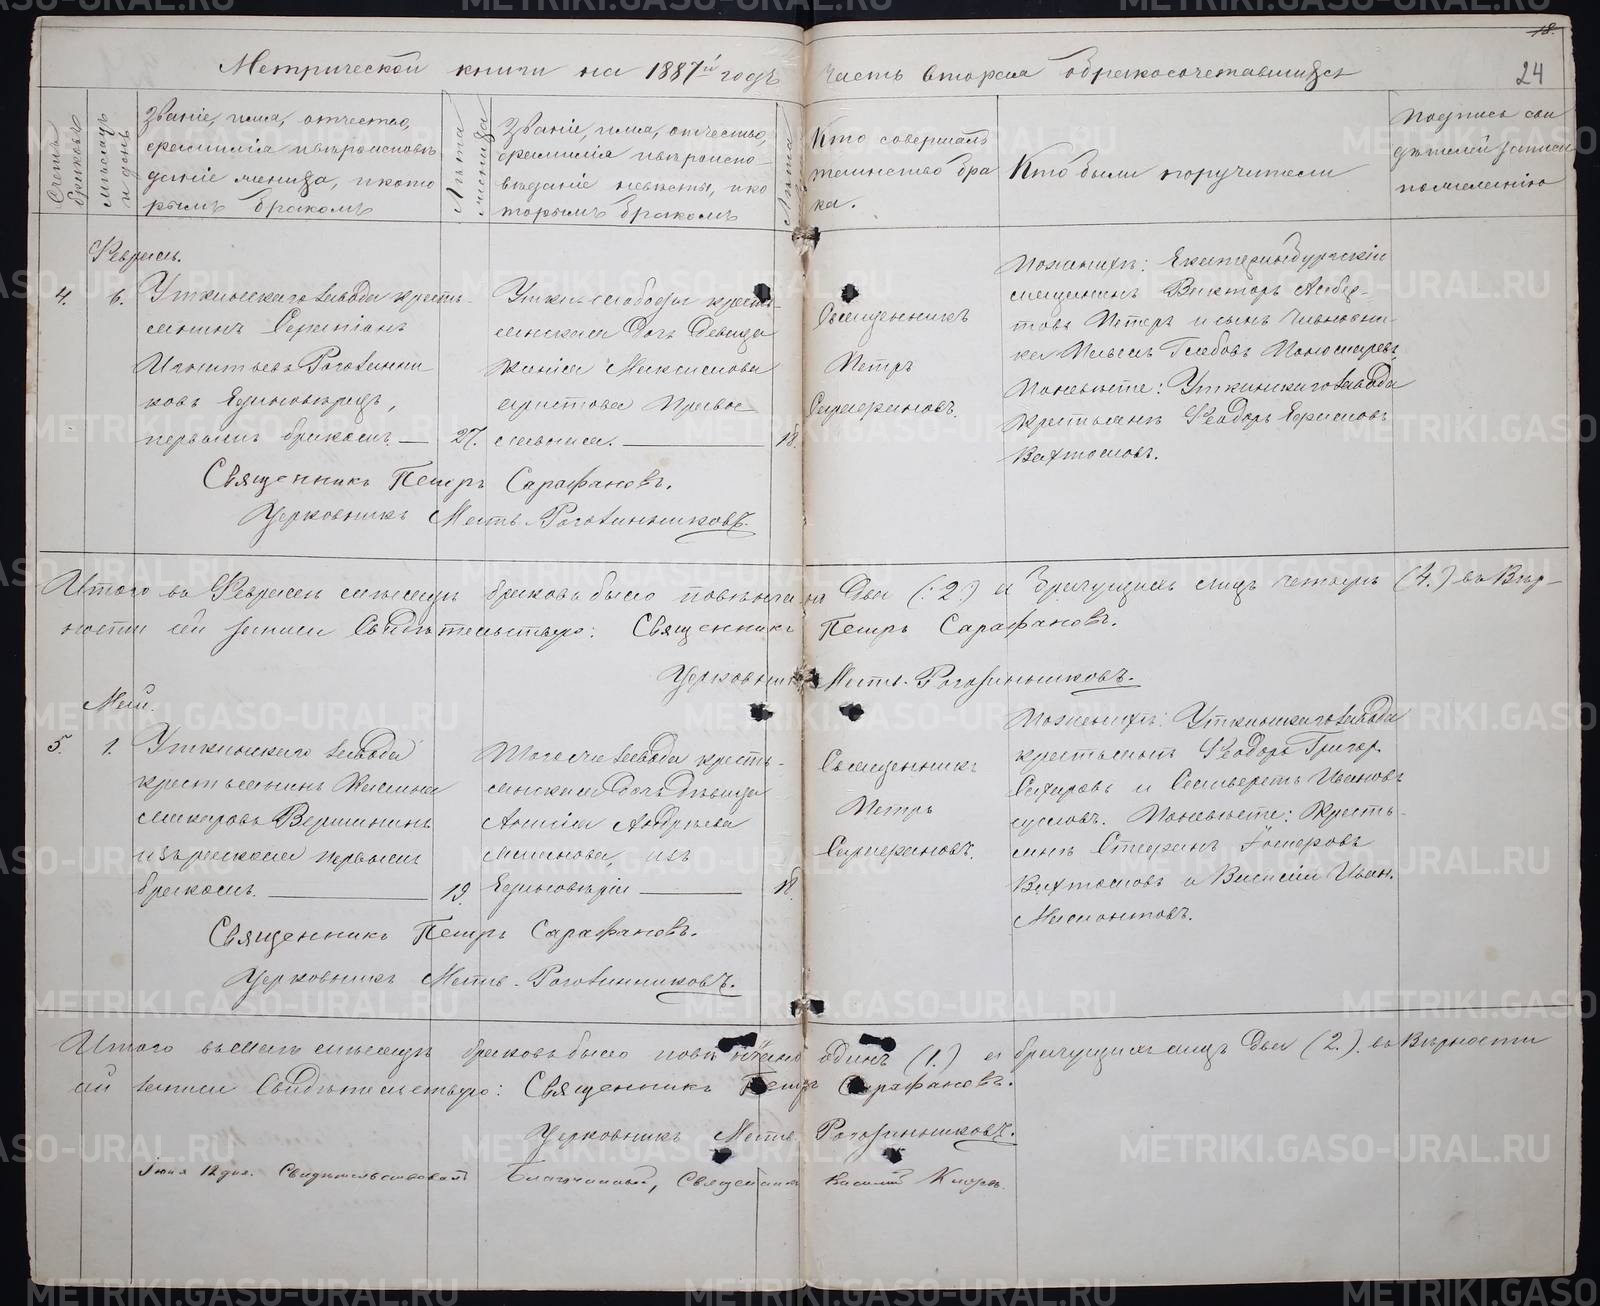 18.
24
Метрической книги на 1887й годъ часть вторая о бракосочетавшихся
Счетъ браковъ
Мѣсяцъ и день
Званіе, имя, отчество,
фамилія и вѣроисповѣ
даніе жениха, и кото
рымъ бракомъ
Лѣта жениха
Званіе, имя, отчество,
фамилія и вѣроиспо-
вѣданіе невѣсты, и ко
торымъ бракомъ
Лѣта
Кто совершалъ
таинство бра
ка.
Кто были поручители
Подпись сви
дѣтелей записи
по желанію
Февраль.
4. 6.
Уткинскаго завода кресть-
янинъ Серапіонъ
Игнатьевъ Роговинни
ковъ Единовѣрецъ,
первымъ бракомъ 27.
Уткин. слободы кресть-
янская дочь девица
Максимова
Правос
лавная. 18.
Священникъ
Петръ
Сарафановъ.
По женихѣ: Екатеринбургскій
мещанинъ Викторъ Альбер-
товъ Петеръ и сынъ чиновни-
ка Павелъ Глебовъ Пономаревъ
По невѣсте: Уткинскаго завода
крестьянъ Феодоръ Ефимовъ
Вахтомовъ.
Священникъ Петръ Сарафановъ.
Церковникъ Матв. Роговинниковъ.
Итого въ Феврале месяце браковъ было повѣнчано два (2.) а брачущихся лицъ четыре (4.) въ вѣр-
ности сей записи свидѣтельствую: Священникъ Петръ Сарафановъ.
Церковникъ Матв. Роговинниковъ.
Май.
5. 1.
Уткинскаго завода
крестьянинъ
Макаровъ Вершининъ
из раскола первымъ
бракомъ. 19.
завода кресть-
янская дочь дѣвица
Анисія Андреева
изъ
Единовѣрія 18.
Священникъ
Петръ
Сарафановъ.
По женихѣ: Уткинскаго завода
крестьянинъ Феодоръ Григор.
Сахаровъ и Селиверстъ Ивановъ
Сусловъ. По невѣсте: Кресть-
янъ Стефанъ
Вахтомовъ и Василій Иван.
Мамонтовъ.
Священникъ Петръ Сарафановъ.
Церковникъ Матв. Роговинниковъ.
Итого въ Мае месяце браковъ было повѣнчано одинъ (1.) а брачущихся лицъ два (2.). въ вѣрности
сей записи свидѣтельствую: Священникъ Петръ Сарафановъ.
Церковникъ Матв. Роговинниковъ.
Іюня 12 дня. Свидѣтельствовалъ Благочинный, Священникъ Василій
METRIKI.GASO-URAL.RU